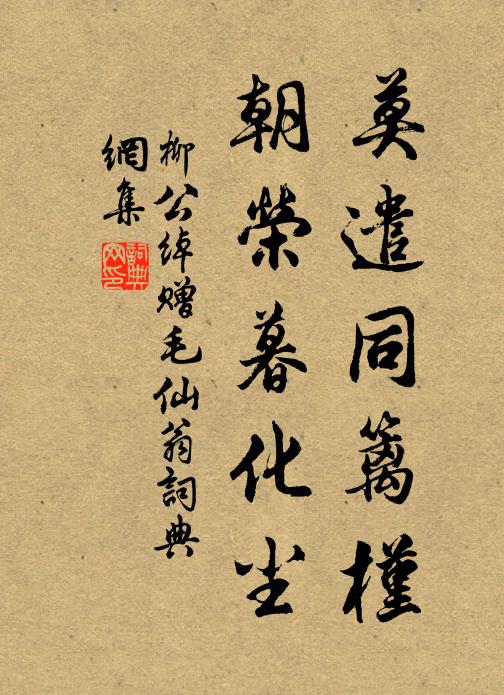 莫遣同篱槿
朝榮暮化尘
柳公绰赠毛仙翁詞典
網集
詞典
网印